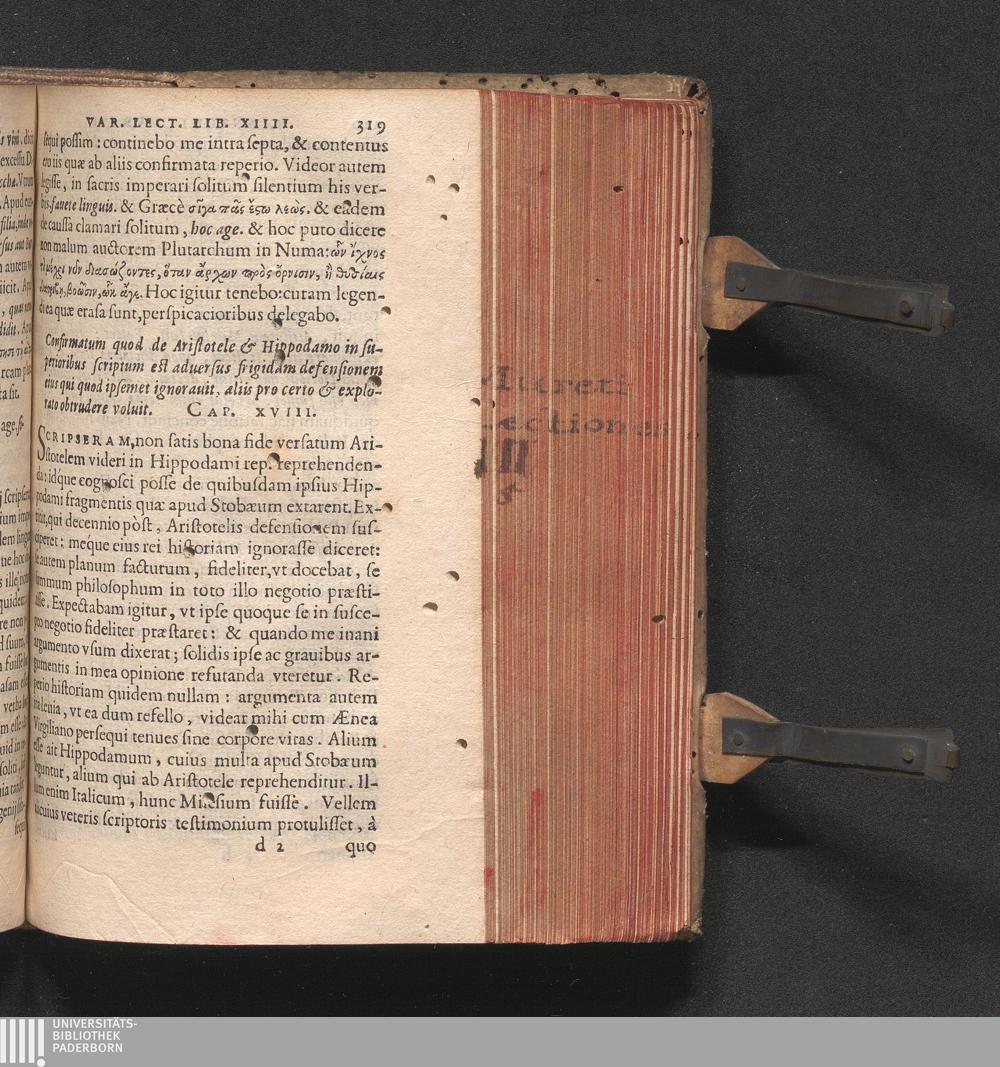 VAR. LECT. LIB. XIIII. 319
sequi possim: continebo me intra septa, & contentus
ero iis quæ ab aliis confirmata reperio. Videor autem
legisse, in sacris imperari solitum silentium his ver-
bis, fauete linguis. & Græcè σῖγα πᾶς ἔστω λεώς. & eadem
de caussa clamari solitum, hoc age. & hoc puto dicere
non malum auctorem Plutarchum in Numa: ὧν ἴχνος
μέχρι νῦν διασώζοντες, ὅταν ἄρχων πρὸς ὄρνισιν, ἢ θυσίαις
βοῶσιν, ὡκ ἄγε. Hoc igitur tenebo: curam legen-
di ea quæ erasa sunt, perspicacioribus delegabo.
Confirmatum quod de Aristotele & Hippodamo in su-
perioribus scriptum est aduersus frigidam defensionem
eius qui quod ipsemet ignorauit, aliis pro certo & explo-
rato obtrudere voluit. CAP. XVIII.
SCRIPSERAM, non satis bona fide versatum Ari-
stotelem videri in Hippodami rep. reprehenden-
da: idque cognosci posse de quibusdam ipsius Hip-
podami fragmentis quæ apud Stobæum extarent. Ex-
titit, qui decennio pòst, Aristotelis defensionem sus-
ciperet: meque eius rei historiam ignorasse diceret:
se autem planum facturum, fideliter, vt docebat, se
summum philosophum in toto illo negotio præsti-
tisse. Expectabam igitur, vt ipse quoque se in susce-
pto negotio fideliter præstaret: & quando me inani
argumento vsum dixerat; solidis ipse ac grauibus ar-
gumentis in mea opinione refutanda vteretur. Re-
perio historiam quidem nullam: argumenta autem
ita leuia, vt ea dum refello, videar mihi cum Ænea
Virgiliano persequi tenues sine corpore vitas. Alium
esse ait Hippodamum, cuius multa apud Stobæum
leguntur, alium qui ab Aristotele reprehenditur. Il-
lum enim Italicum, hunc Milesium fuisse. Vellem
alicuius veteris scriptoris testimonium protulisset, à
d 2 quo
Mureti
Lectiones
III
5
UNIVERSITÄTS-
BIBLIOTHEK
PADERBORN